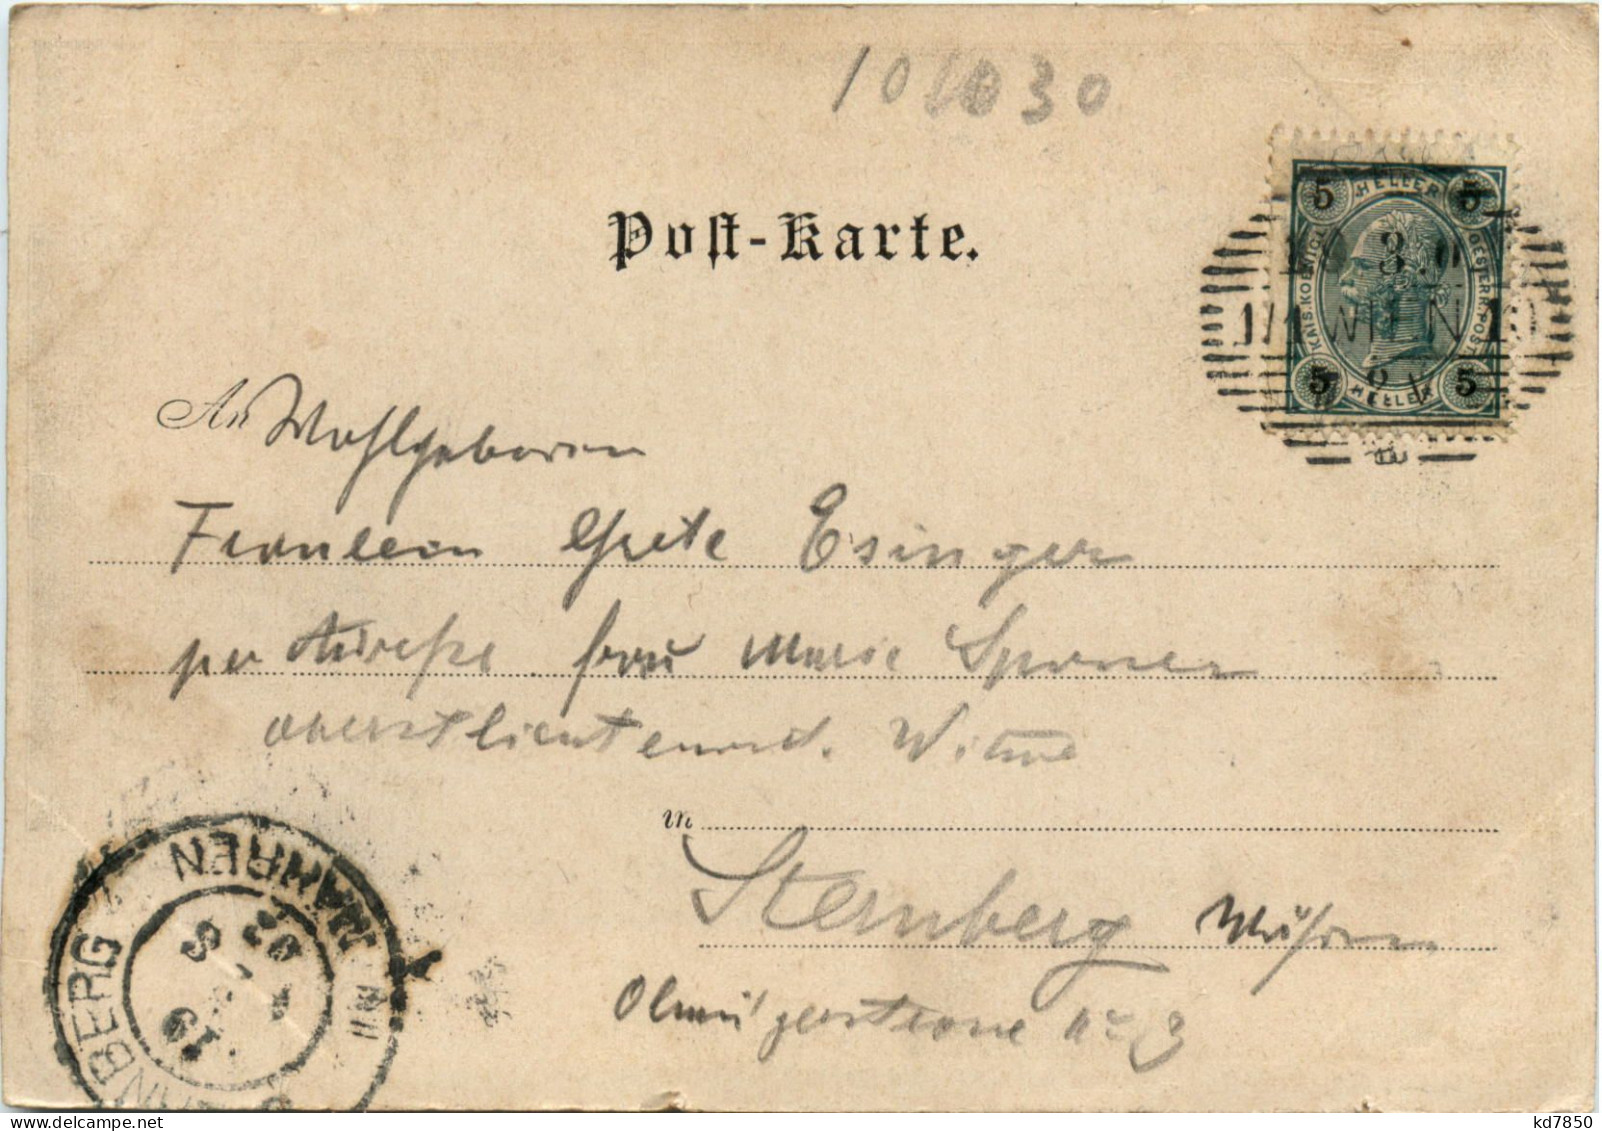 101030
Post-Karte.
5 HELLER 5
KAIS. KOENIGL. OESTERR. POST
5 HELLER 5
3.0
1/1 WIEN 1
An Wohlgeboren
Fräulein Grete Esinger
per Adresse Frau Marie Sponer
Oberstlieutenand. Witwe
in
Sternberg Mähren
Olmützerstrasse No 3
STERNBERG MÄHREN
kd7850